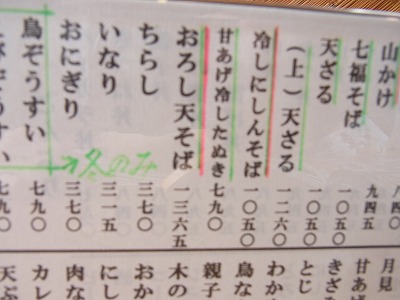 山かけ 八四〇
七福そば 九四五
天ざる 一〇五〇
(上)天ざる 一二六〇
冷しにしんそば 一〇五〇
甘あげ冷したぬき 七九〇
おろし天そば 一三六五
ちらし 三七〇
いなり 三一五
おにぎり 三七〇
→冬のみ
鳥ぞうすい 七九〇
ぞうすい 七九〇
月見
甘あ
きざ
とじ
わか
鳥な
親子
木の
おか
にし
肉な
カレ
天ぷ